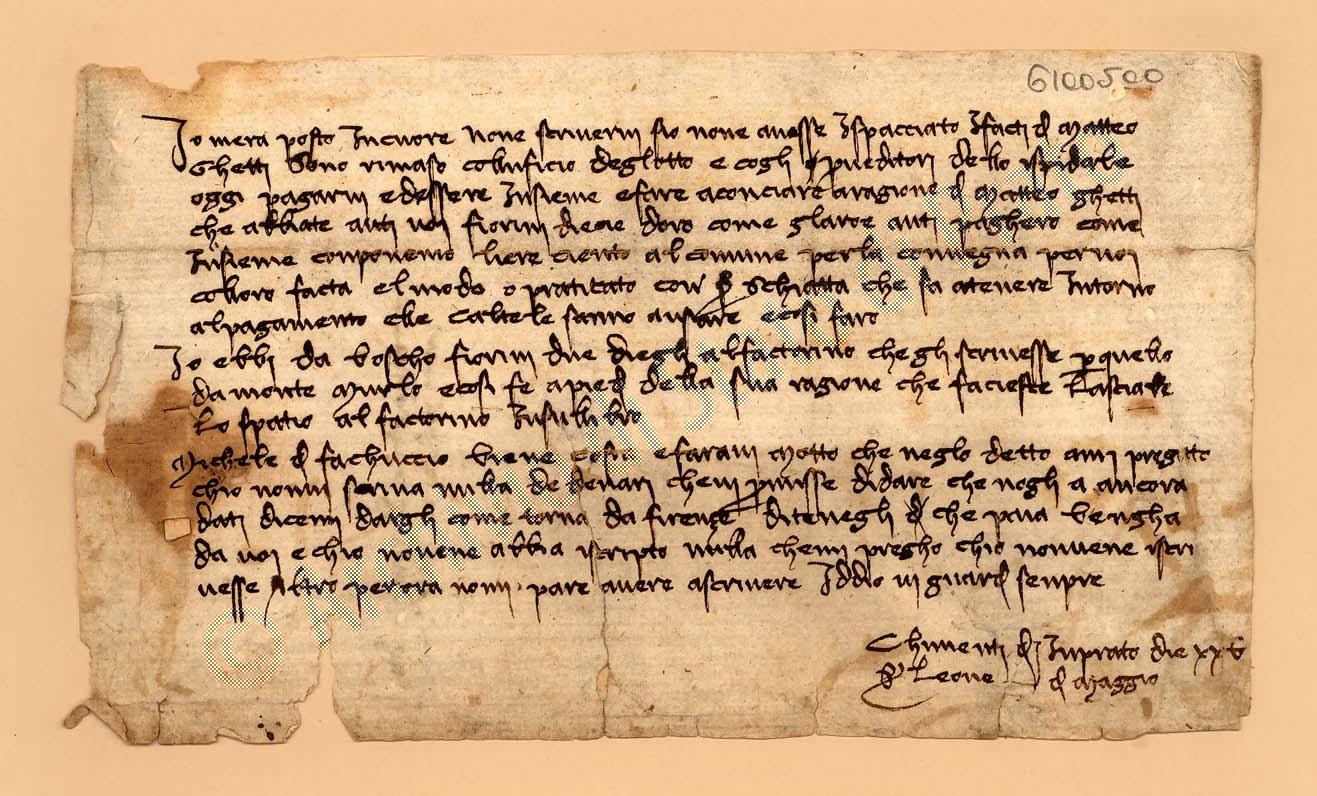 6100500
Io mera posto Incuore none scrivervi sio none avesse Ispacciato Ifacti di Matteo
Ghetti Sono rimaso colluficio deglotto e cogli proveditori dello
oggi pagarvi edessere Insieme efare aconciare laragione di Matteo ghetti
che abbiate auti voi fiorini diecie doro come glaroe auti paghero come
Insieme conponemo liere ciento al comune perla convegna pervoi
colloro facta elmodo o praticato con Schiatta che fa atenere Intorno
alpagamento che ecosi faro
Io ebbi da boscho fiorini due diegli alfactorino chegli scrivesse per quello
da monte Murlo ecosi fe apiedi della sua ragione che facieste Lasciare
Lo spatio al factorino Insullibro
Michele di fachuccio viene costa efaravi Motto che neglo detto ami pregatto
chio nonvi scriva nulla de denari chevi promisse didare che nogli a ancora
dati dicemi dargli come torna da firenze ditenegli di che pria vengha
da voi e chio novene abbia iscripto nulla chemi pregho chio nonvene iscri
vesse Altro perora nomi pare avere ascrivere Iddio vi guardi senpre
Chimenti di Inprato die xxv
Leone di Maggio